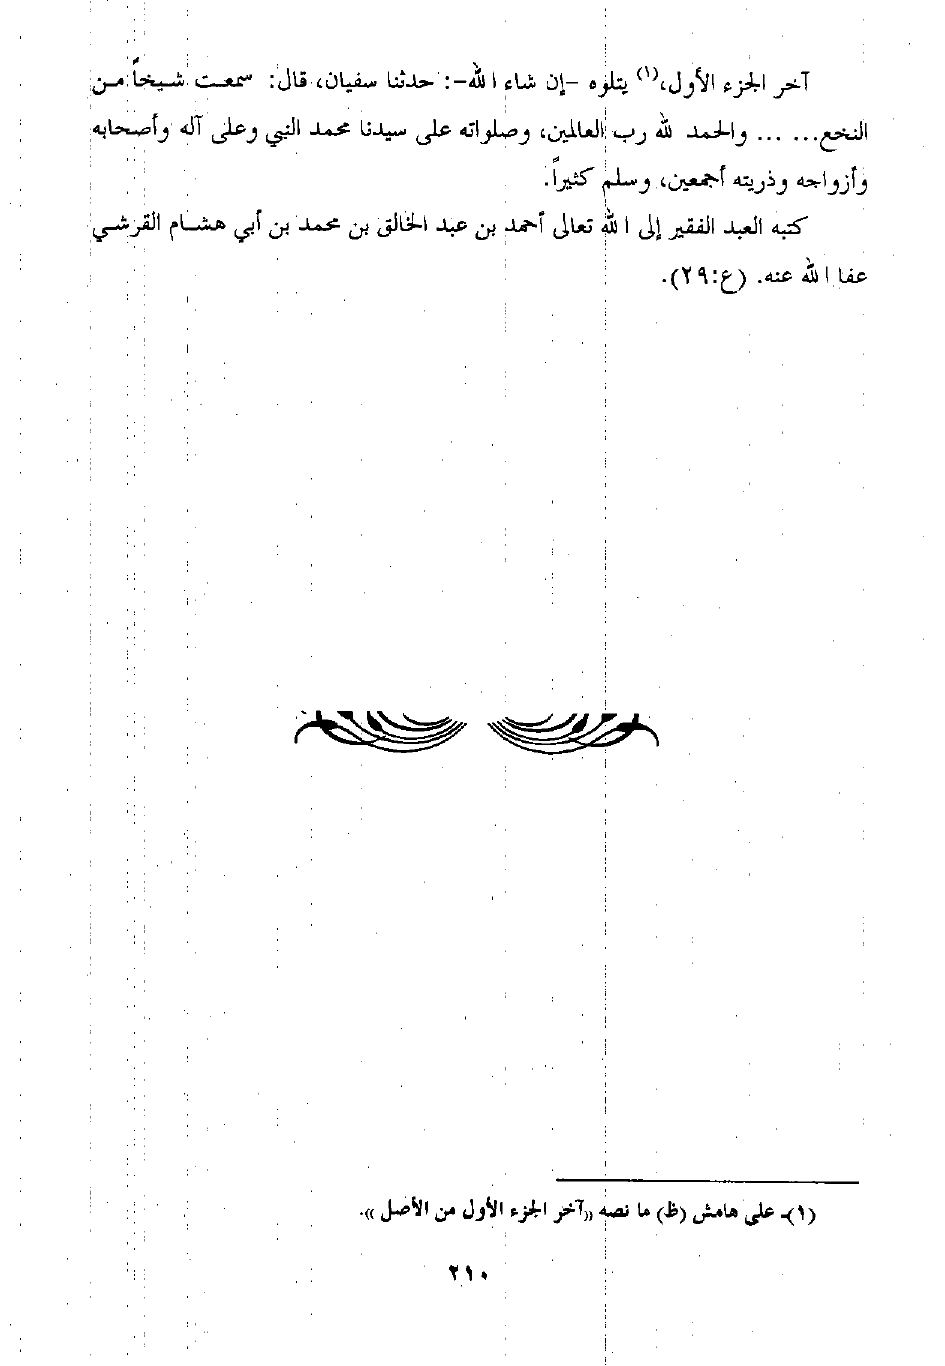 آخر الجزء الأول،(١) يتلوه -إن شاء الله-: حدثنا سفيان، قال: سمعت شيخاً من
النخع... ... والحمد لله رب العالمين، وصلواته على سيدنا محمد النبي وعلى آله وأصحابه
وأزواجه وذريته أجمعين، وسلم كثيراً.
كتبه العبد الفقير إلى الله تعالى أحمد بن عبد الخالق بن محمد بن أبي هشام القرشي
عفا الله عنه. (ع:٢٩).
(١)- على هامش (ظ) ما نصه «آخر الجزء الأول من الأصل».
٢١٠